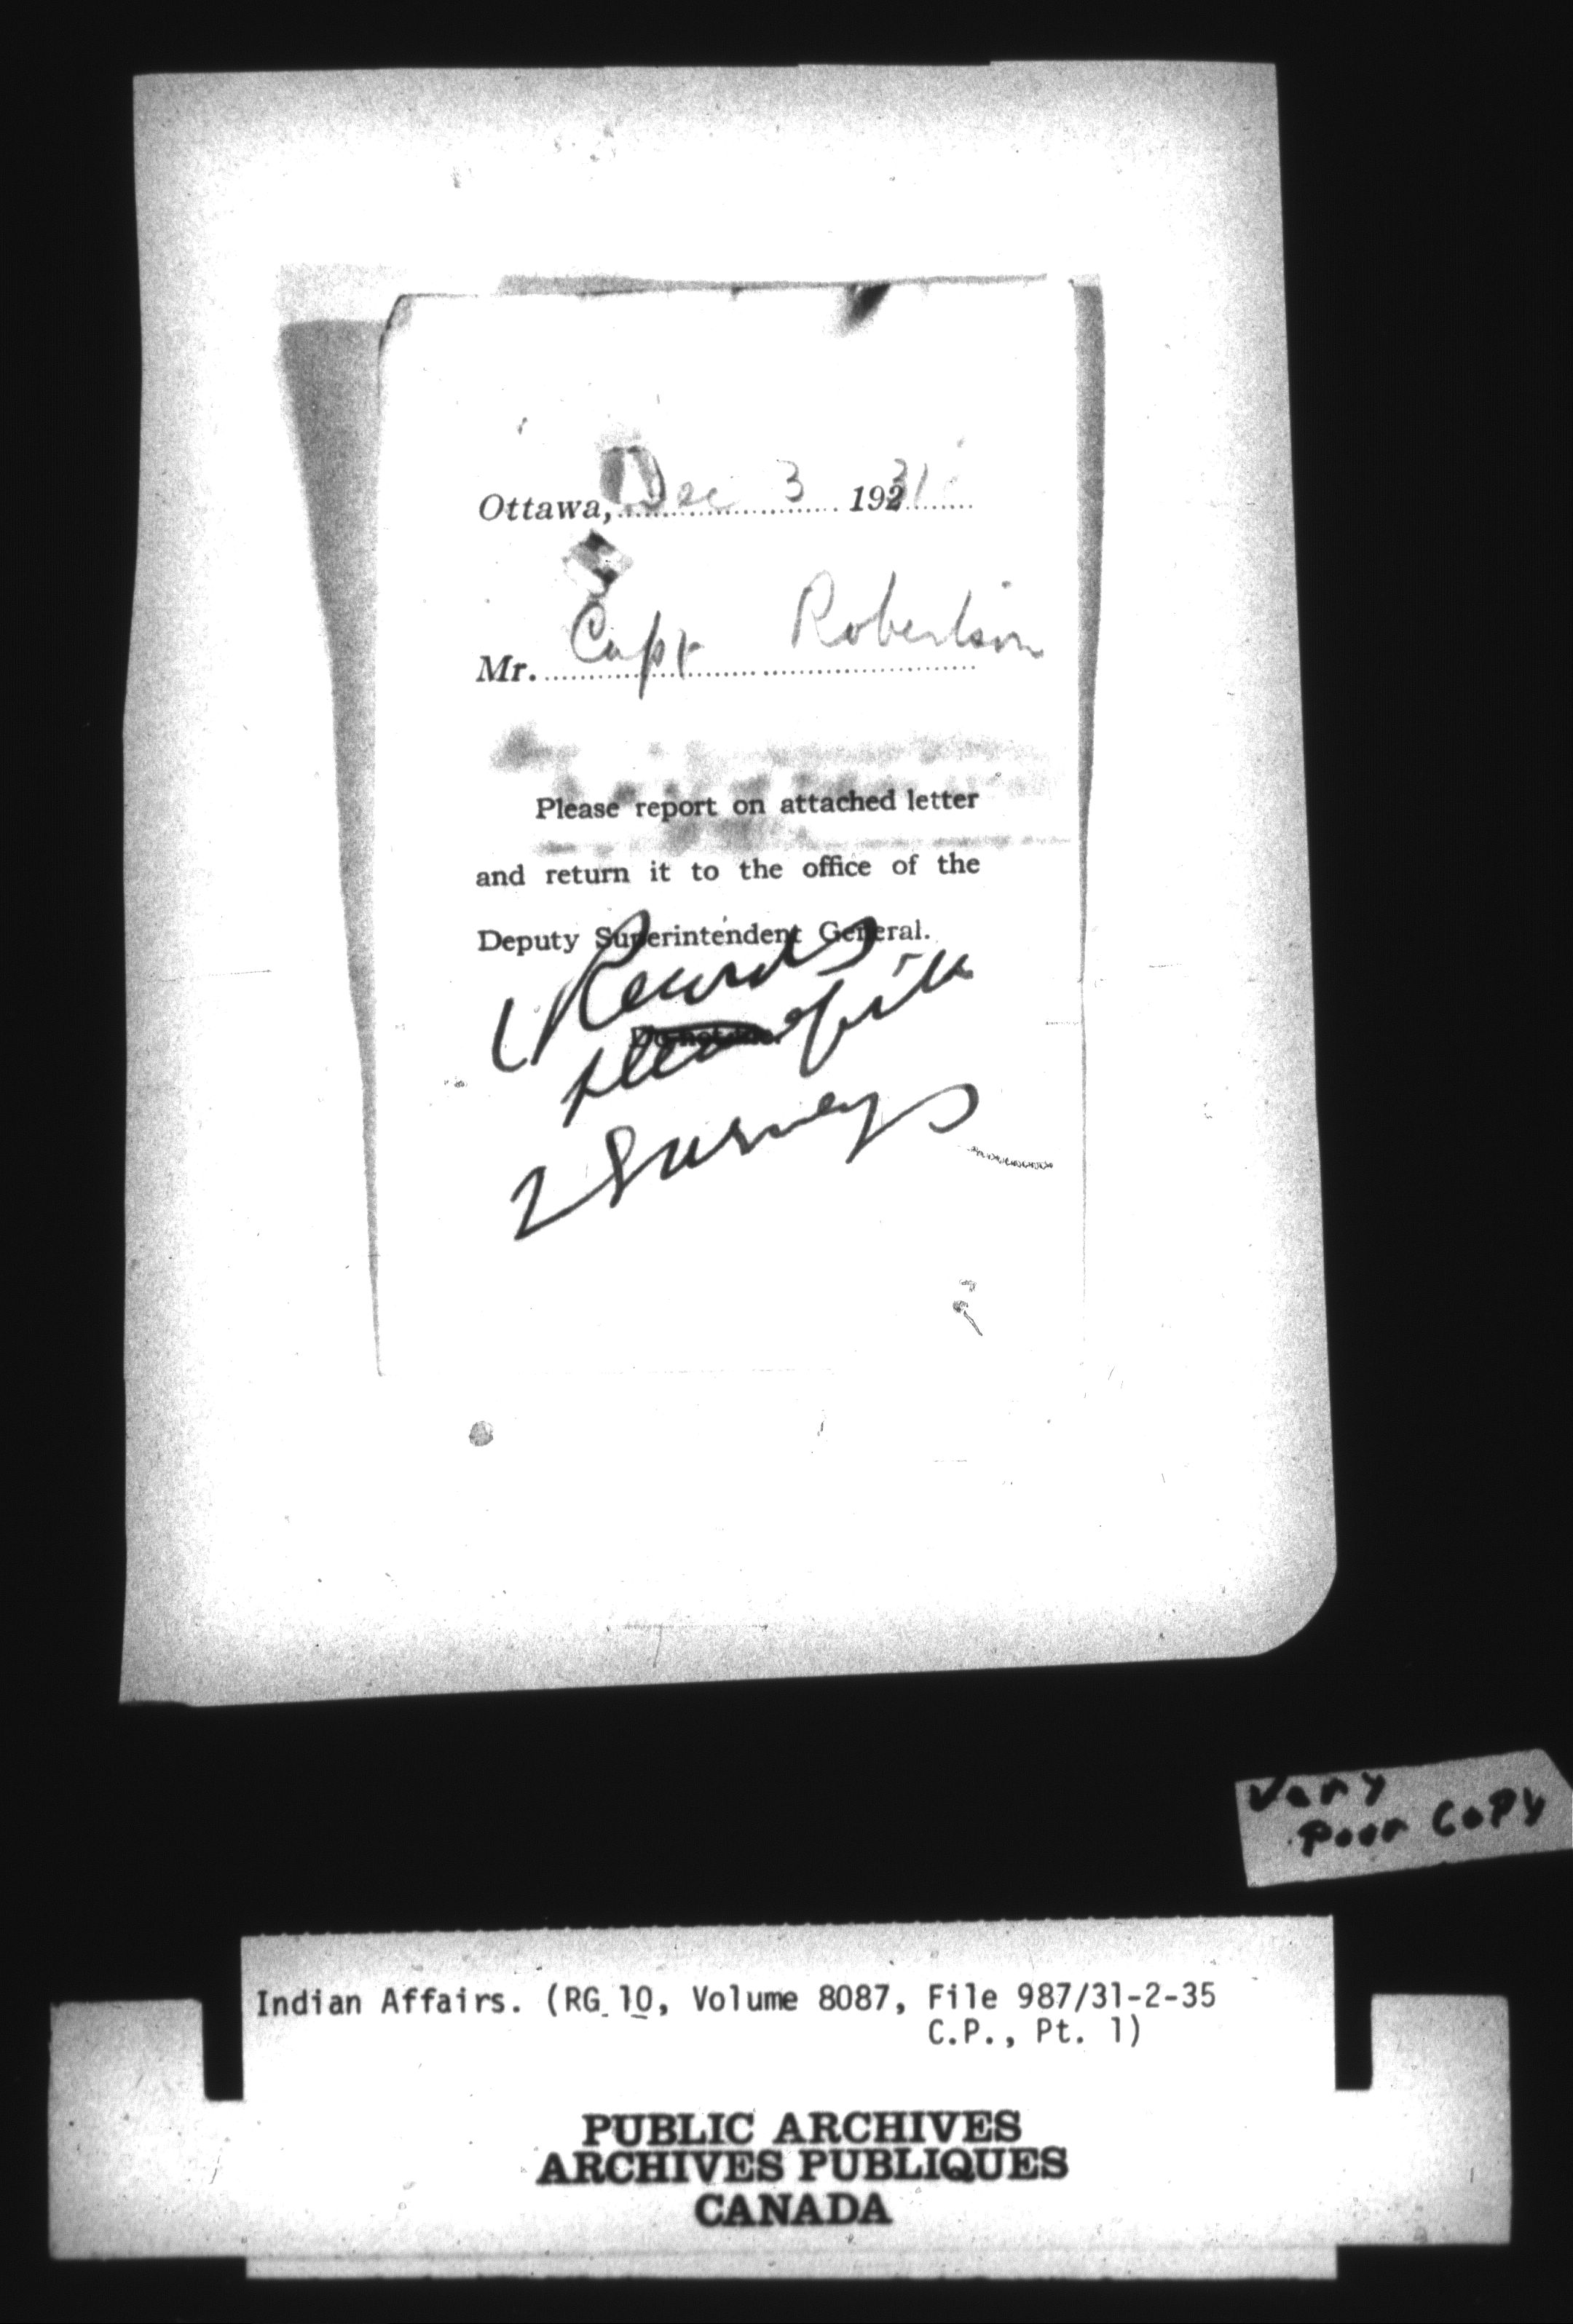 Ottawa, Dec 3 1931
Mr. Capt Robertson
Please report on attached letter
and return it to the office of the
Deputy Superintendent General.
1 Records
file
2 Surveys
Very
Poor Copy
Indian Affairs. (RG 10, Volume 8087, File 987/31-2-35
C.P., Pt. 1)
PUBLIC ARCHIVES
ARCHIVES PUBLIQUES
CANADA